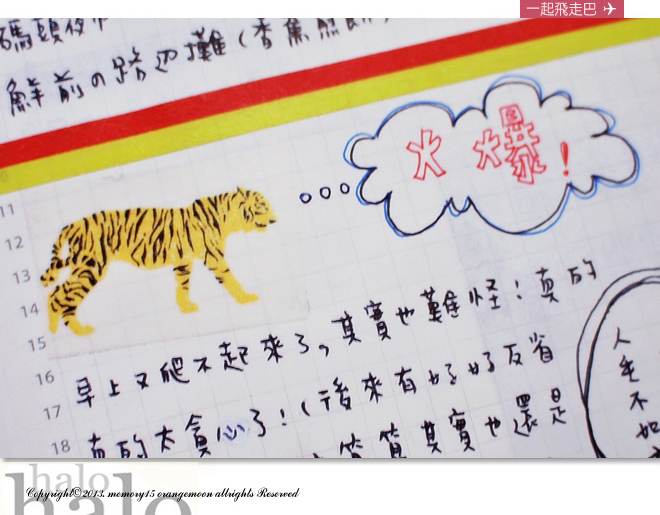 一起飛走巴
碼頭夜市
鮮前の路边攤(香蕉煎餅)
火爆!
11
12
13
14
15
16
17
18
早上又爬不起來了,其實也難怪!真的
真的太貪心了!(後來有好好反省
其實也還是
人生不如
halo
halo
Copyright© 2013. memory15 orangemoon allrights Reserved